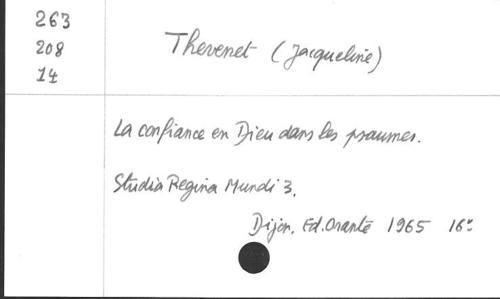 263
208
14
Thevenet (Jacqueline)
La confiance en Dieu dans les psaumes.
Studia Regina Mundi 3.
Dijon. Ed. Orante 1965 16°